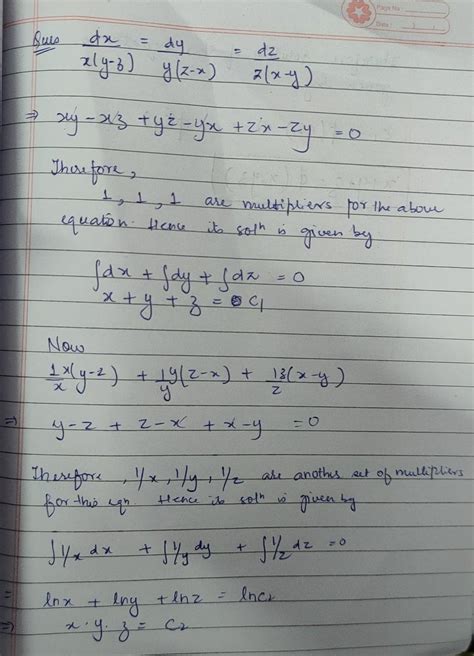 Page No
Date
Ques dx/x(y-z) = dy/y(z-x) = dz/z(x-y)
⇒ xy - xz + yz - yx + zx - zy = 0
Therefore,
1, 1, 1 are multipliers for the above
equation. Hence its solⁿ is given by
∫dx + ∫dy + ∫dz = 0
x + y + z = C1
Now
1/x x(y-z) + 1/y y(z-x) + 1/z z(x-y)
⇒ y-z + z-x + x-y = 0
Therefore, 1/x, 1/y, 1/z are another set of multipliers
for this eqn Hence its solⁿ is given by
∫1/x dx + ∫1/y dy + ∫1/z dz = 0
= lnx + lny + lnz = lnc2
⇒ x.y.z = C2